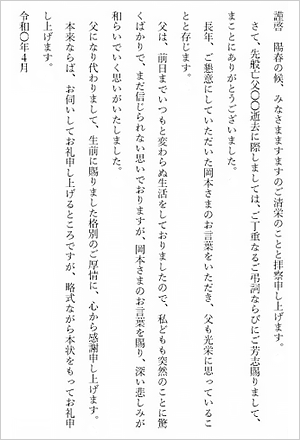 謹啓　陽春の候、みなさまますますのご清栄のことと拝察申し上げます。
さて、先般亡父〇〇逝去に際しましては、ご丁重なるご弔詞ならびにご芳志賜りまして、
まことにありがとうございました。
長年、ご懇意にしていただいた岡本さまのお言葉をいただき、父も光栄に思っているこ
とと存じます。
父は、前日までいつもと変わらぬ生活をしておりましたので、私どもも突然のことに驚
くばかりで、まだ信じられない思いでおりますが、岡本さまのお言葉を賜り、深い悲しみが
和らいでいく思いがいたしました。
父になり代わりまして、生前に賜りました格別のご厚情に、心から感謝申し上げます。
本来ならば、お伺いしてお礼申し上げるところですが、略式ながら本状をもってお礼申
し上げます。
令和〇年４月